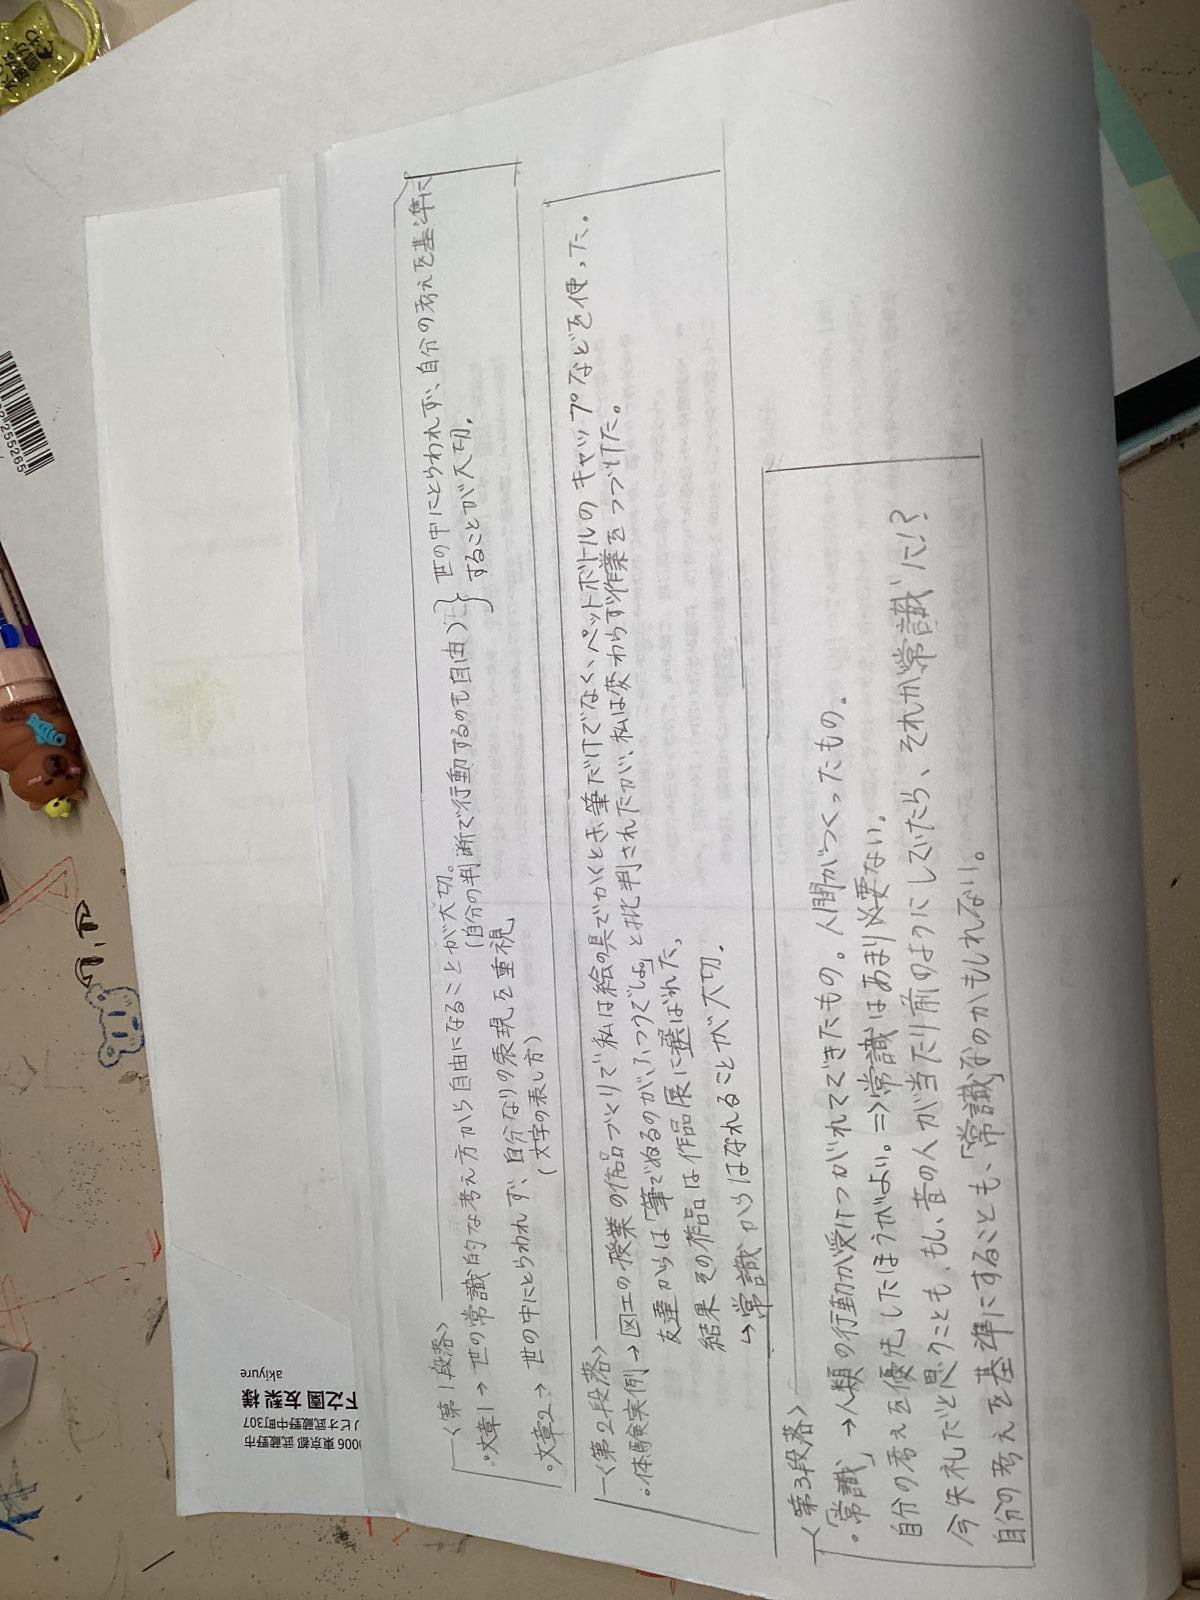 〈第1段落〉
・文章1→世の常識的な考え方から自由になることが大切。
(自分の判断で行動するのも自由)
・文章2→世の中にとらわれず、自分なりの表現を重視
(文字の表し方)
世の中にとらわれず、自分の考えを基準に
することが大切。
〈第2段落〉
・体験実例→図工の授業の作品づくりで私は絵の具でかくとき筆だけでなく、ペットボトルのキャップなどを使った。
友達からは「筆でぬるのがふつうでしょ」と批判されたが、私は変わらず作業をつづけた。
結果その作品は作品展に選ばれた。
↳常識からはなれることが大切。
〈第3段落〉
・「常識」→人類の行動が受けつがれてできたもの。人間がつくったもの。
自分の考えを優先したほうがよい。⇒常識はあまり必要ない。
今失礼だと思うことも、もし、昔の人が当たり前のようにしていたら、それが"常識"に!?
自分の考えを基準にすることも、「常識」なのかもしれない。
006 東京都 武蔵野市
ノビオ武蔵野中町307
下之園 友梨 様
akiyure
2255265